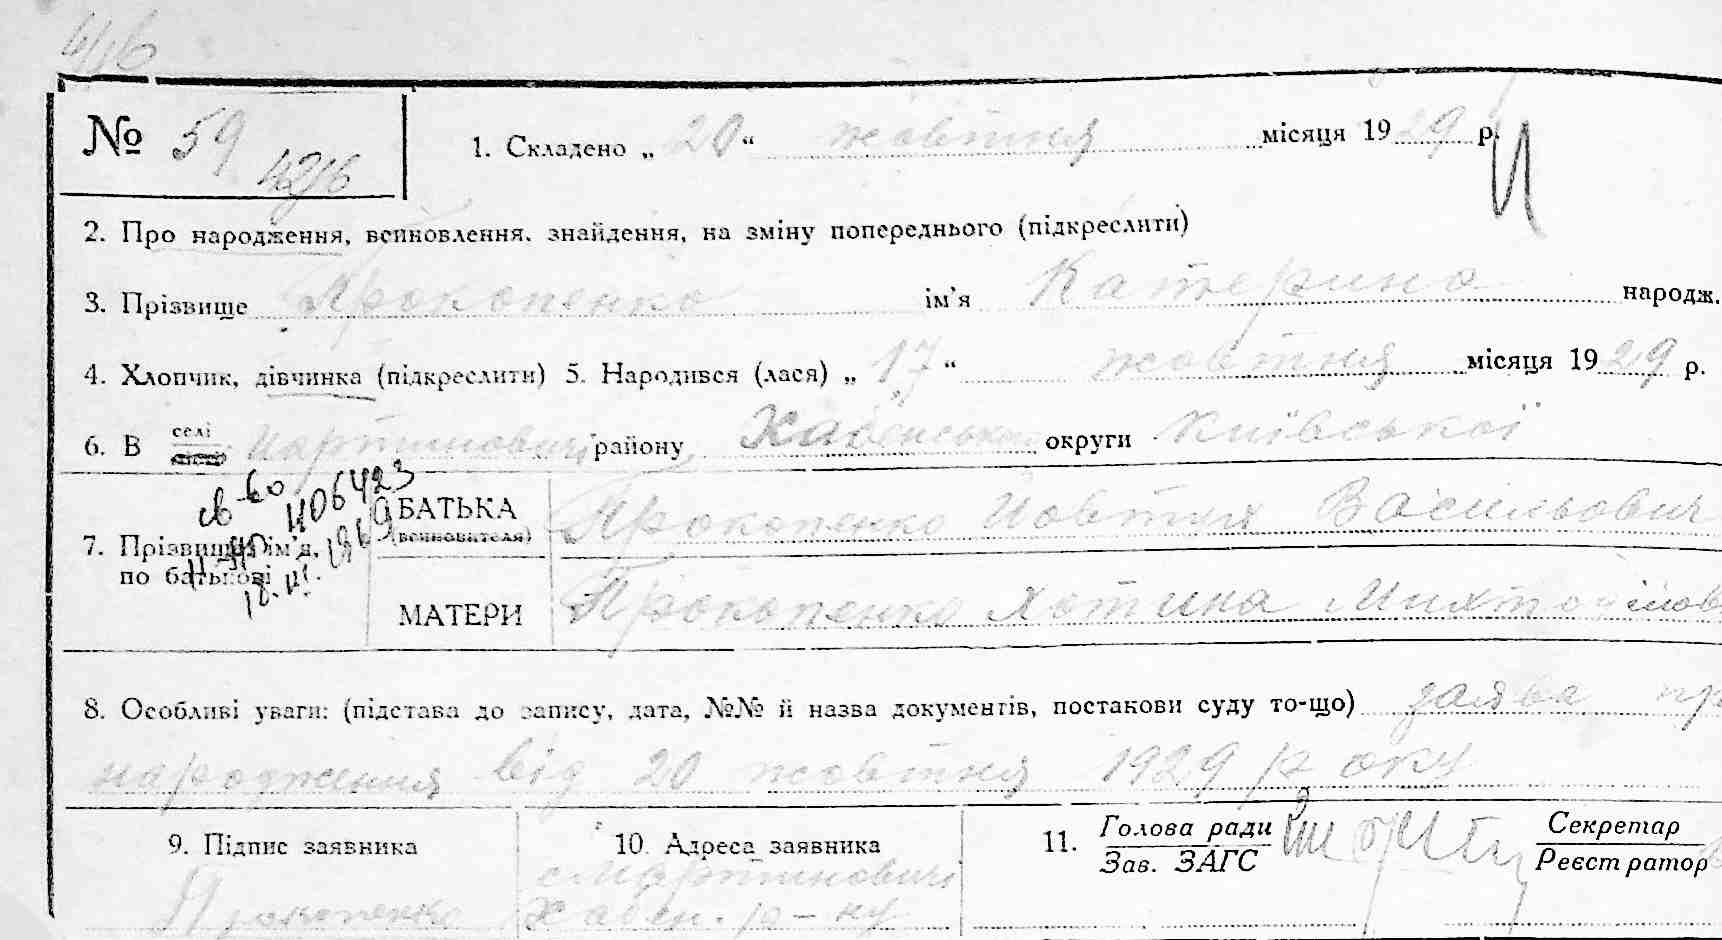 4/16
№ 59
4216
1. Складено „ 20 “ жовтня місяця 1929 р.
2. Про народження, всиновлення, знайдення, на зміну попереднього (підкреслити)
3. Прізвище Прокопенко ім’я Катерина народж.
4. Хлопчик, дівчинка (підкреслити) 5. Народився (лася) „ 17 “ жовтня місяця 1929 р.
6. В селі Мартиновичі району округи Київської
7. Прізвище, ім’я, по батькові
БАТЬКА (всиновителя) Прокопенко Васильович
МАТЕРИ Прокопенко Хотина
8. Особливі уваги: (підстава до запису, дата, №№ й назва документів, постакови суду то-що) заява пр
народження від 20 жовтня 1929 року
9. Підпис заявника
10. Адреса заявника
11. Голова ради
Зав. ЗАГС
Секретар
Реєстратор
Прокопенко
с Мартиновичі
Хабен. р-ну